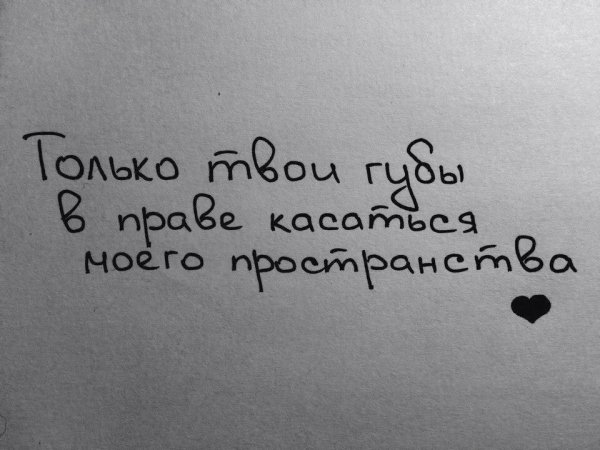 Только твои губы
в праве касаться
моего пространства